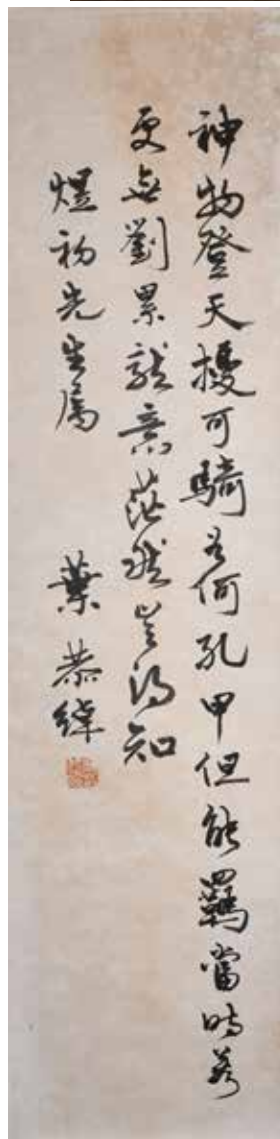 神物登天擾可騎如何孔甲但能羈當時若
更無劉累龍意茫然豈得知
煜初先生屬 葉恭綽